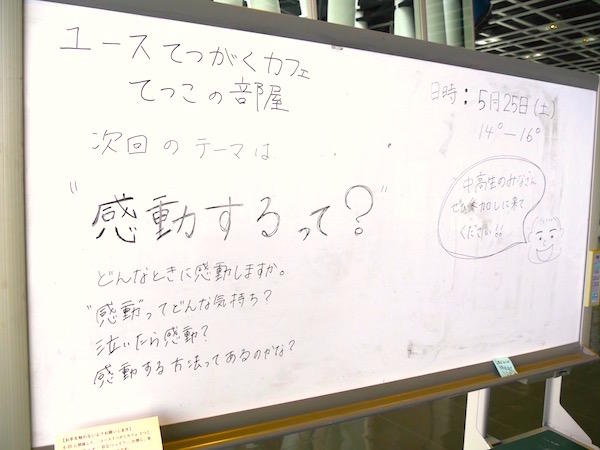 ユースてつがくカフェ
てつこの部屋
日時：5月25日（土）
14°ー16°
次回のテーマは
"感動するって？"
中高生のみなさん
ぜひ参加しに来て
ください!!
どんなときに感動しますか。
"感動"ってどんな気持ち？
泣いたら感動？
感動する方法ってあるのかな？